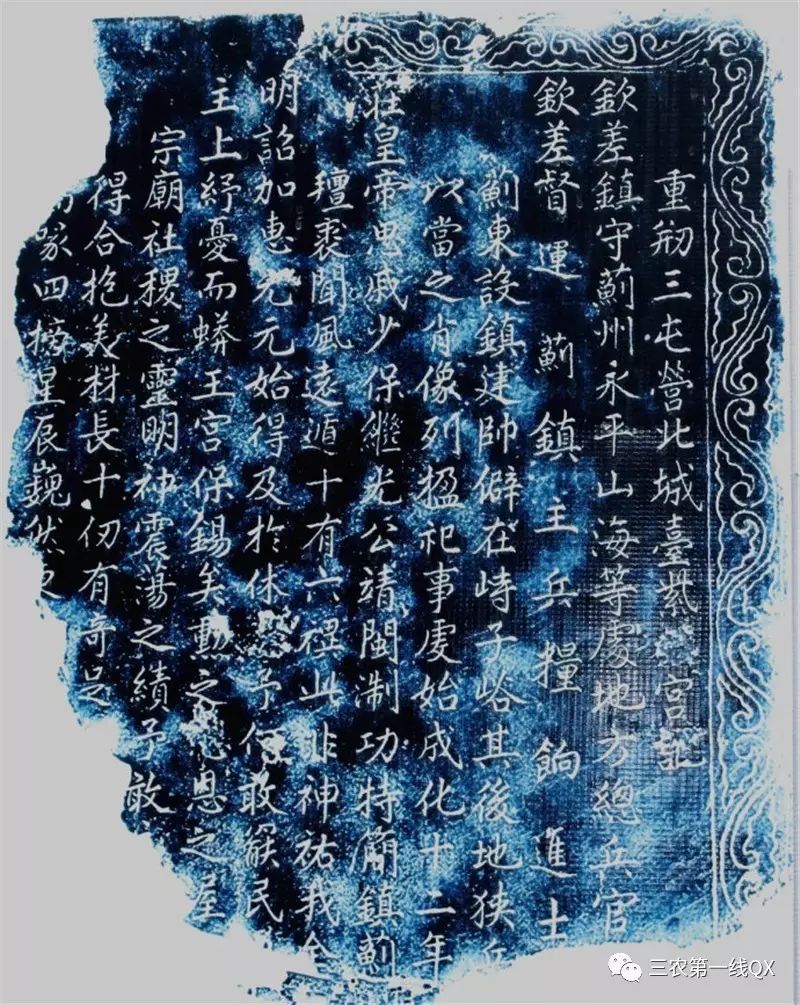 重刱三屯營北城臺紫宮記
欽差鎮守薊州永平山海等處地方總兵官
欽差督運薊鎮主兵糧餉進士
薊東設鎮建帥僻在峙子峪其後地狹
以當之肖像列搵祀事處始成化十二年
莊皇帝思戚少保繼光公靖閩淛功特簡鎮薊
羶裘聞風遠遁十有六禩此非神祐我
明詔加惠元元始得及於休予何敢厭民
主上紓憂而蟒玉宮保錫矣動之恩之屋
宗廟社稷之靈明神震蕩之績予敢
得合抱美材長十仞有奇足
四星辰巍然
三农第一线QX